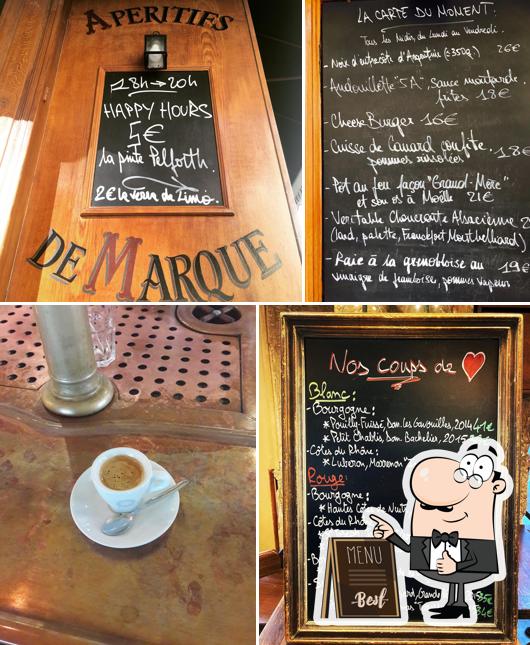 APERITIFS
18h → 20h
HAPPY HOURS
5€
la pinte Pelforth.
2€ le verre de Limo.
DE MARQUE
LA CARTE DU MOMENT
Tous les midis, du Lundi au Vendredi.
- Noix d'entrecôte d'Argentine (±350g.) 26€
- Andouillette "5A", sauce moutarde
frites 18€
- Cheese Burger 16€
- Cuisse de Canard confite, 18€
pommes rissolées
- Pot au feu façon "Grand-Mère"
et son os à Moëlle
- Véritable Choucroute Alsacienne
lard, palette, Francfort Montbelliard
- Raie à la grenobloise au 19€
vinaigre de framboise, pommes vapeur
Nos coups de
Blanc:
- Bourgogne:
* Pouilly-Fuissé, Dom. Les Gerouilles, 2014 41€
* Petit Chablis, Dom. Bachelier, 2015
- Côtes du Rhône:
* Luberon, Marrenon"
Rouge:
- Bourgogne:
* Hautes Côtes de Nuits
- Côtes du Rhô
MENU
Best